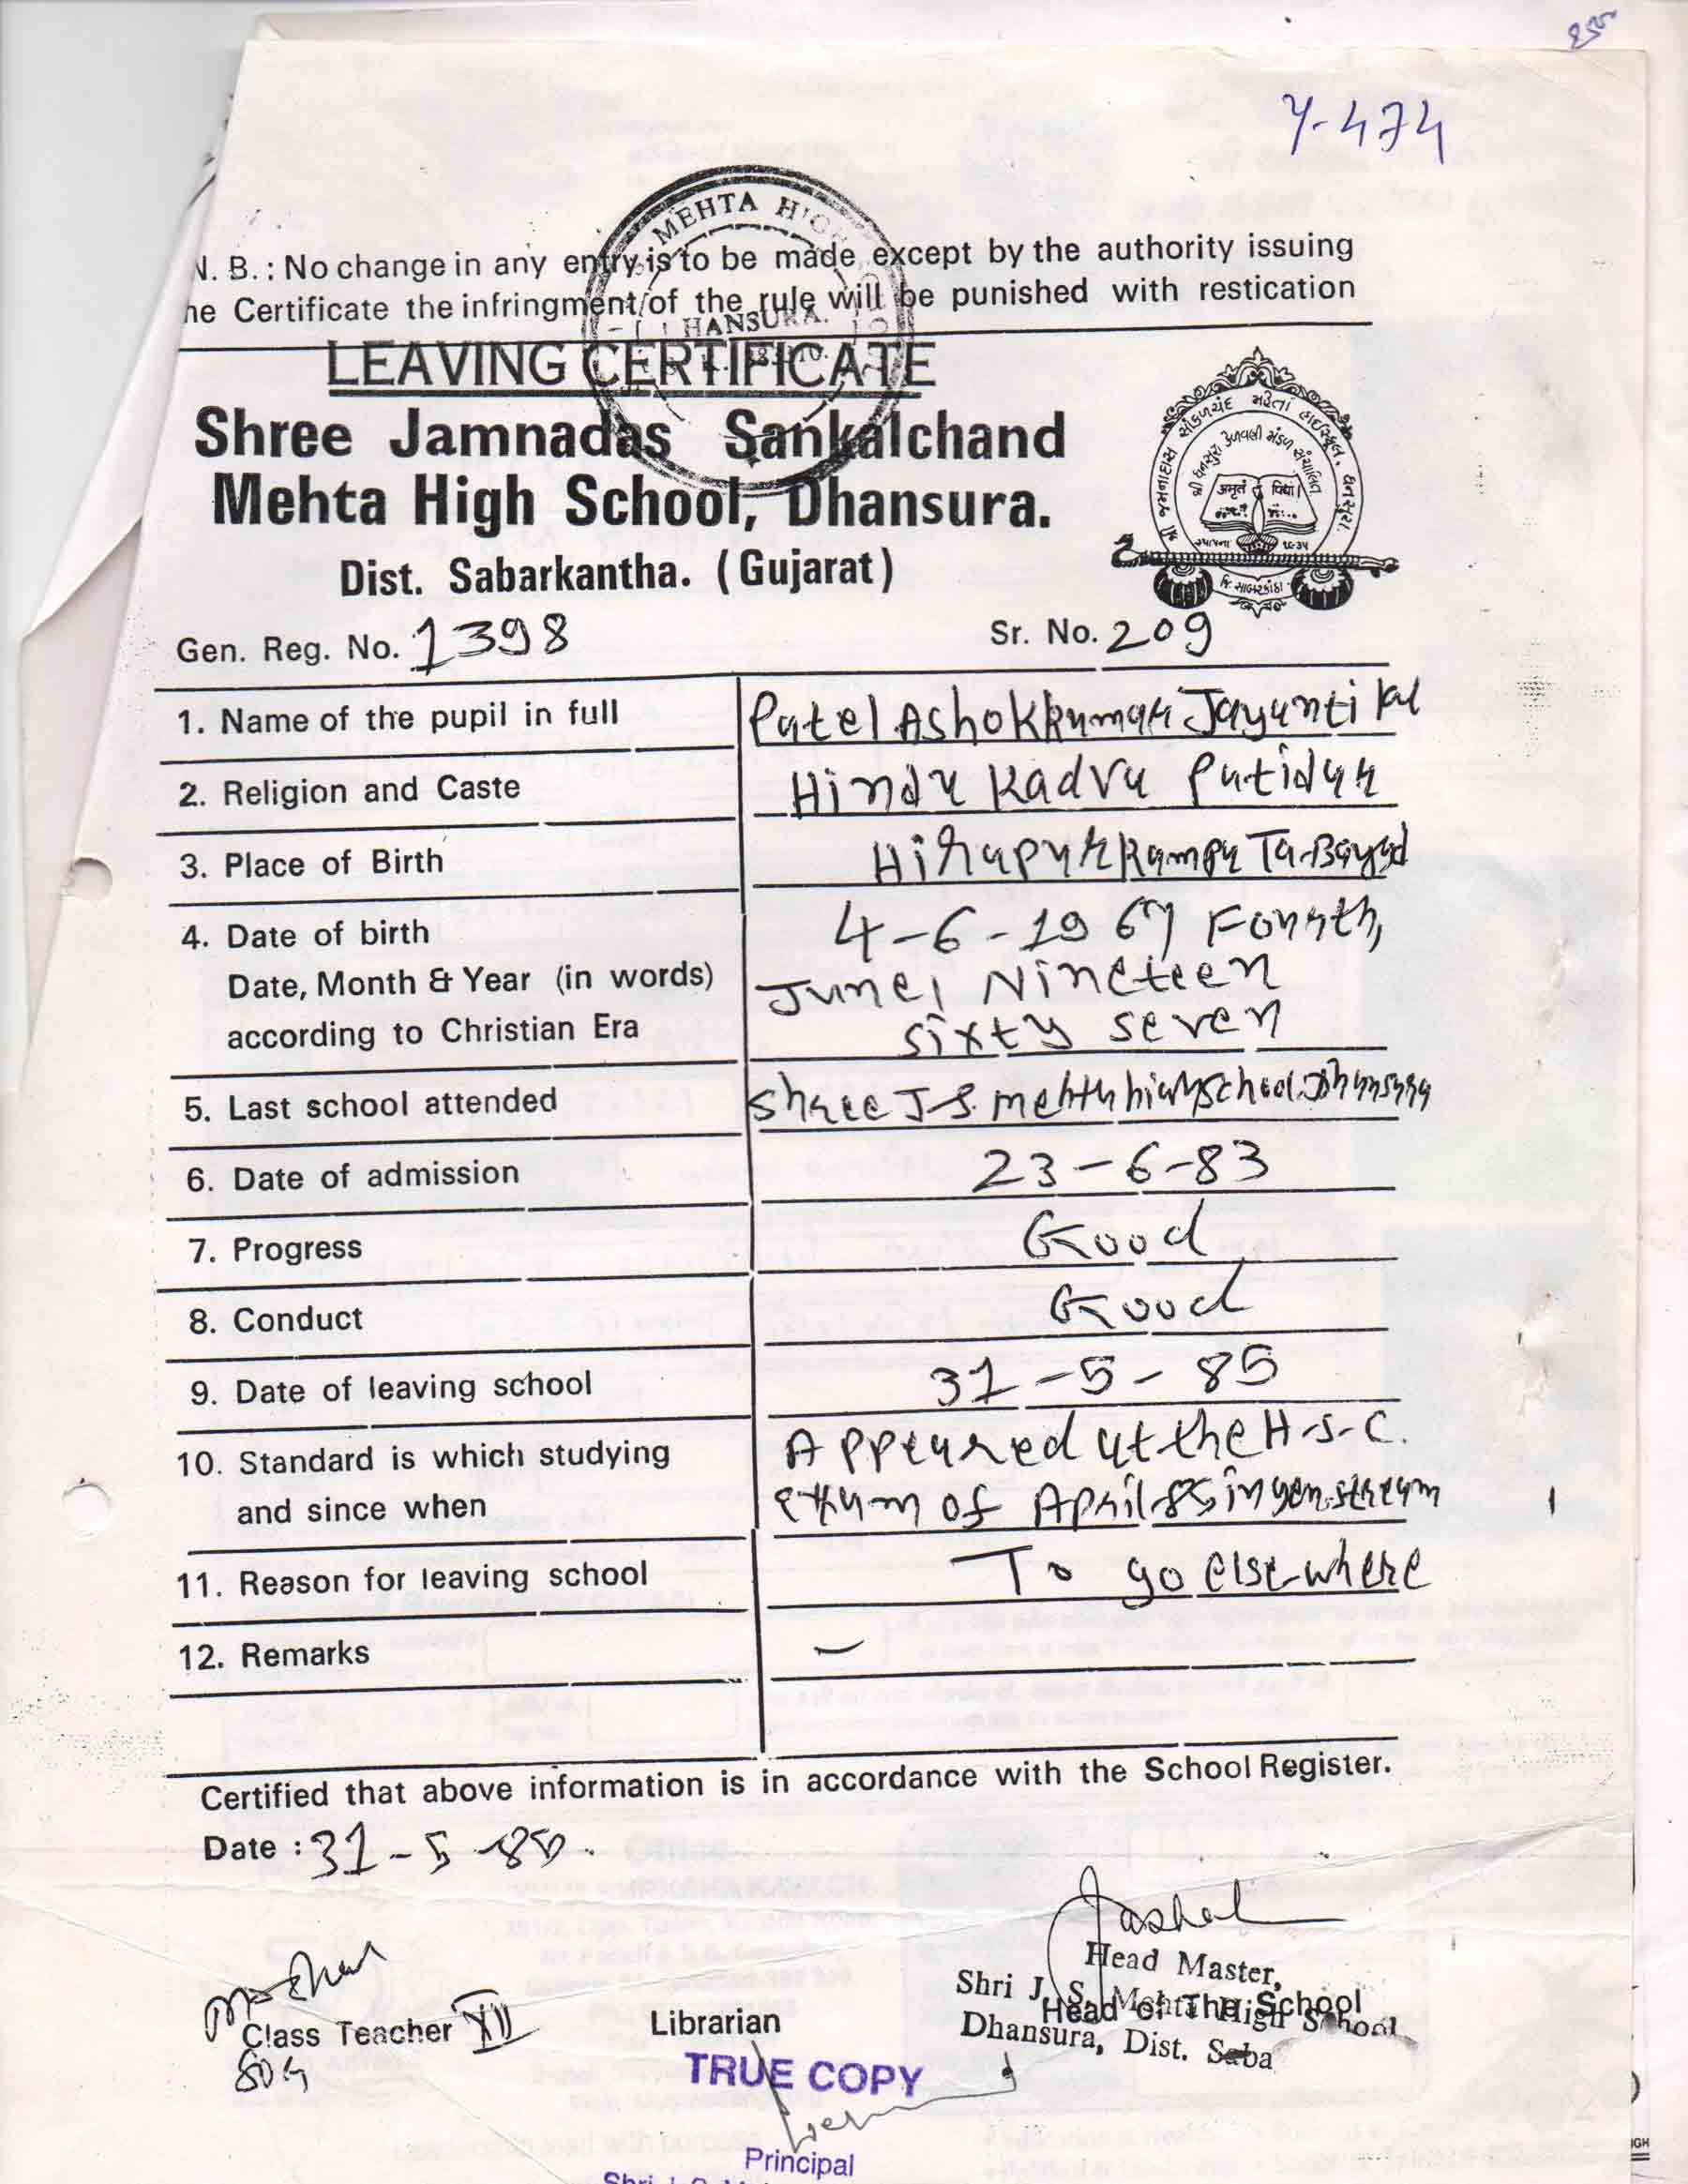 Y-474
N. B. : No change in any entry is to be made except by the authority issuing
he Certificate the infringment of the rule will be punished with restication
MEHTA HIGH
HANSURA.
LEAVING CERTIFICATE
Shree Jamnadas Sankalchand
Mehta High School, Dhansura.
Dist. Sabarkantha. (Gujarat)
અમૃતં તુ વિદ્યા
જિ. સાબરકાંઠા
Gen. Reg. No. 1398 Sr. No. 209
1. Name of the pupil in full Patel Ashokkumar Jayantilal
2. Religion and Caste Hindu Kadva Patidar
3. Place of Birth Hirapur Kampa Ta-Bayad
4. Date of birth 4-6-1967 Fourth,
Date, Month & Year (in words) June, Nineteen
according to Christian Era sixty seven
5. Last school attended Shree J.S. Mehta high school Dhansura
6. Date of admission 23-6-83
7. Progress Good
8. Conduct Good
9. Date of leaving school 31-5-85
10. Standard is which studying Appeared at the H.S.C.
and since when exam of April-85 in gen. stream
11. Reason for leaving school To go elsewhere
12. Remarks —
Certified that above information is in accordance with the School Register.
Date : 31-5-85.
Head Master,
Shri J. S. Mehta High School
Head of The School
Dhansura, Dist. Saba
Class Teacher XII Librarian
TRUE COPY
Principal